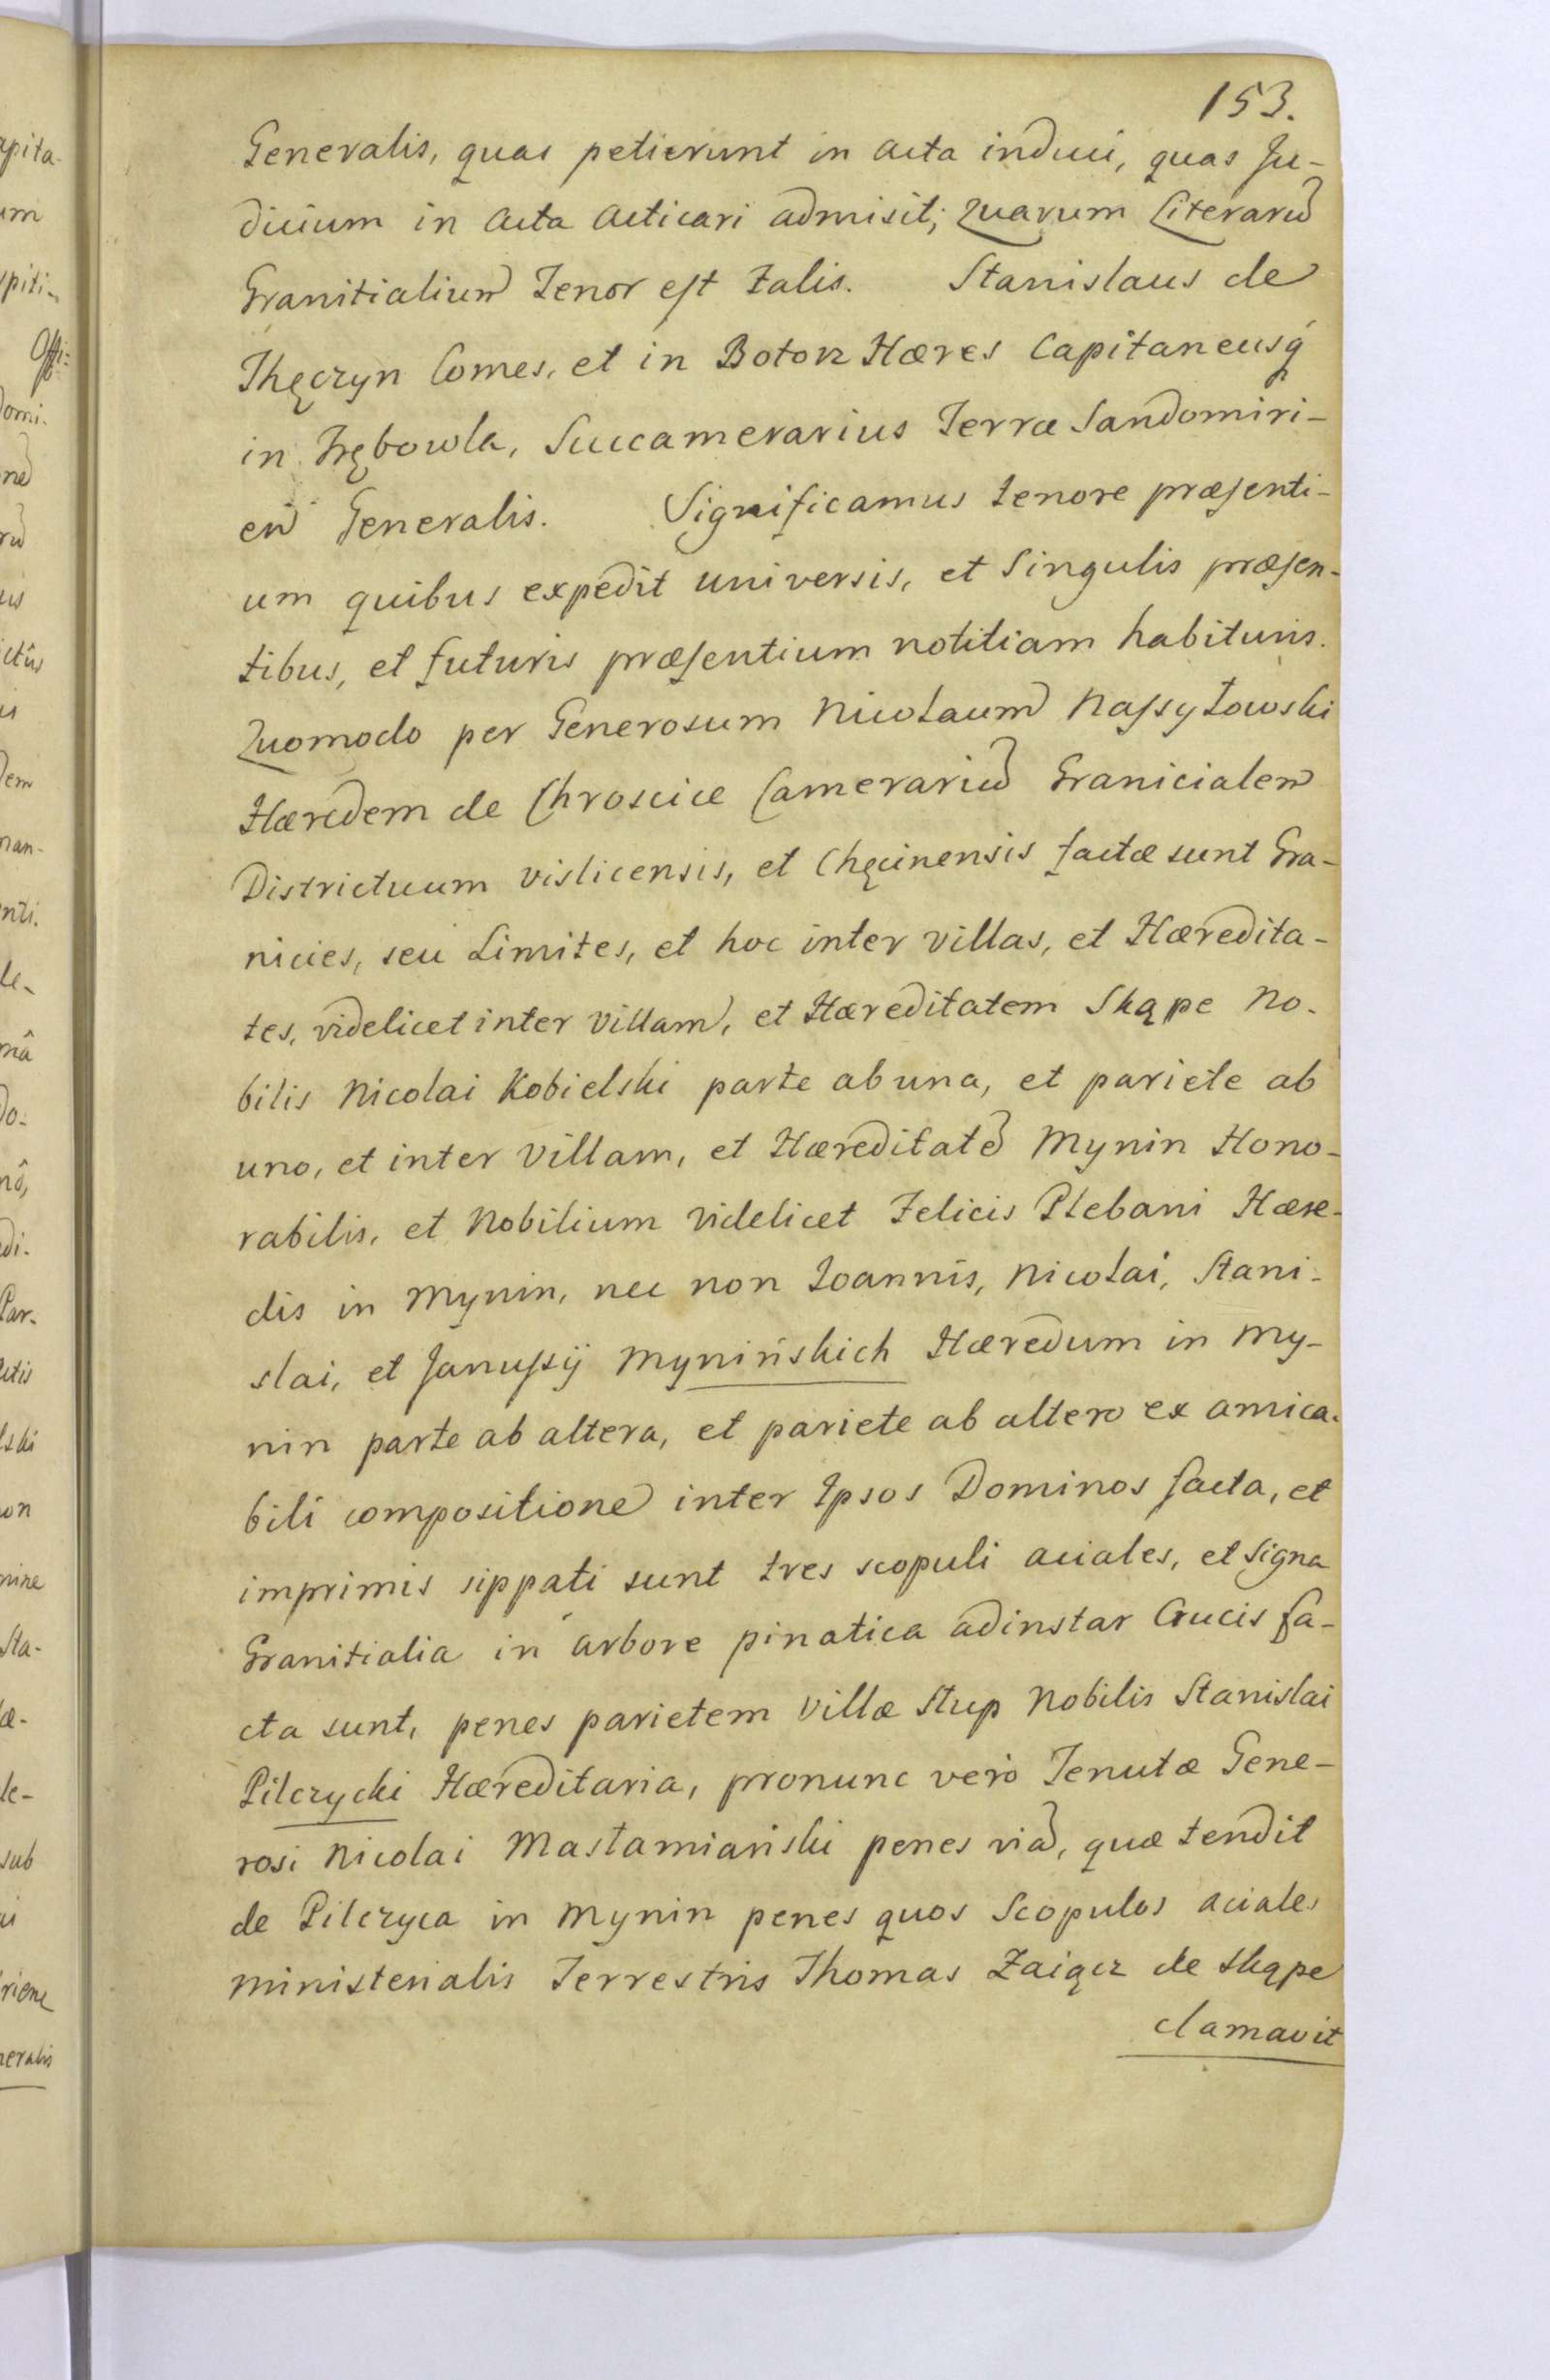 153.
Generalis, quas petierunt in acta induci, quas Ju-
dicium in acta acticari admisit; Quarum Literarū
Granitialium Tenor est talis. Stanislaus de
Thęczyn Comes, et in Botorz Hæres Capitaneusq́
in Trębowla, Succamerarius Terræ Sandomiri-
eñ Generalis. Significamus tenore præsenti-
um quibus expedit universis, et Singulis præsen-
tibus, et futuris præsentium notitiam habituris.
Quomodo per Generosum Nicolaum Nassytowski
Hæredem de Chroscice Camerariū Granicialem
Districtuum vislicensis, et Chęcinensis factæ sunt Gra-
nicies, seu Limites, et hoc inter villas, et Hæredita-
tes, videlicet inter villam, et Hæreditatem Skąpe No-
bilis Nicolai Kobielski parte ab una, et pariete ab
uno, et inter villam, et Hæreditatē Mynin Hono-
rabilis, et Nobilium videlicet Felicis Plebani Hære-
dis in Mynin, nec non Ioannis, Nicolai, Stani-
slai, et Janussij Mynińskich Hæredum in My-
nin parte ab altera, et pariete ab altero ex amica-
bili compositione inter Ipsos Dominos facta, et
imprimis sippati sunt tres scopuli aciales, et Signa
Granitialia in arbore pinatica adinstar Crucis fa-
cta sunt, penes parietem Villæ Stup Nobilis Stanislai
Pilczycki Hæreditaria, pronunc verò Tenutæ Gene-
rosi Nicolai Mastamiański penes viā, quæ tendit
de Pilczyca in Mynin penes quos Scopulos aciales
Ministerialis Terrestris Thomas Zaiącz de Skąpe
clamavit